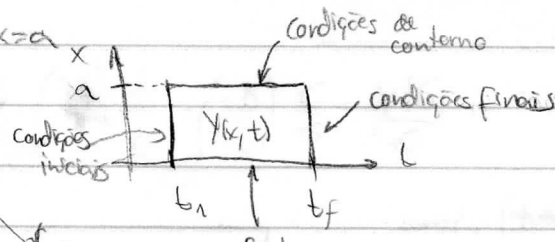 x=a
condições de
contorno
x
a
condições finais
condições
iniciais
Y(x,t)
t
t₁
t_f